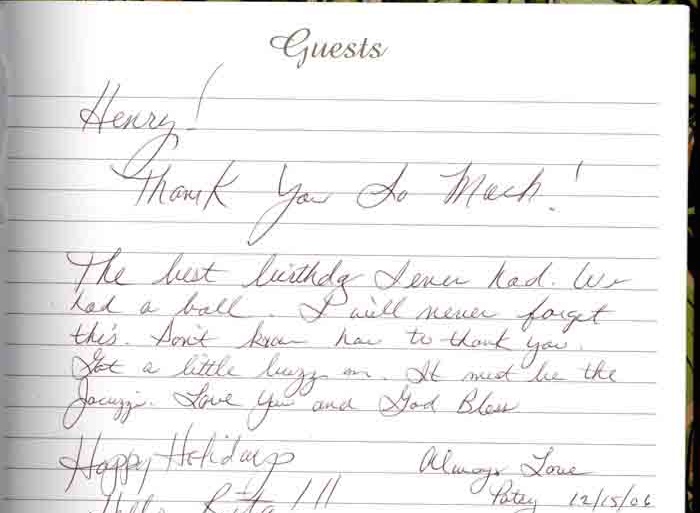 Guests
Henry!
Thank You So Much!
The best birthdy I ever had. We
had a ball. I will never forget
this. Don't know how to thank you.
Got a little buzz on. It must be the
Jacuzzi. Love You and God Bless
Happy Holidays
Always Love
Patsy 12/15/06
Hello Rita!!!